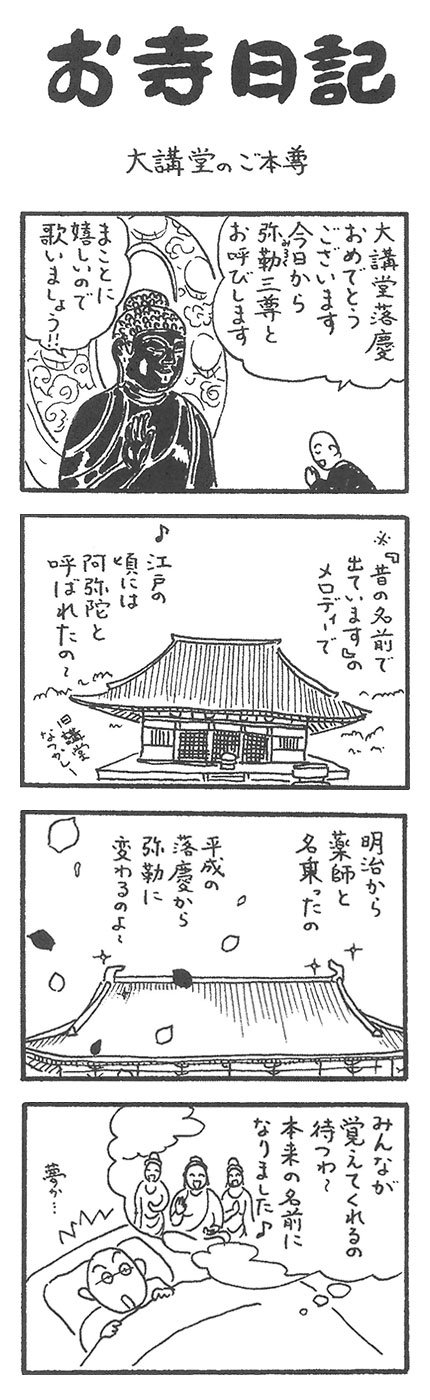 お寺日記
大講堂のご本尊
大講堂落慶
おめでとう
ございます
今日から
弥勒三尊と
みろく
お呼びします
まことに
嬉しいので
歌いましょう!!
※『昔の名前で
出ています』の
メロディーで
♪江戸の
頃には
阿弥陀と
呼ばれたの〜
旧講堂
なつかしー
明治から
薬師と
名乗ったの
平成の
落慶から
弥勒に
変わるのよ〜
みんなが
覚えてくれるの
待つわ〜
本来の名前に
なりました♪
夢か…